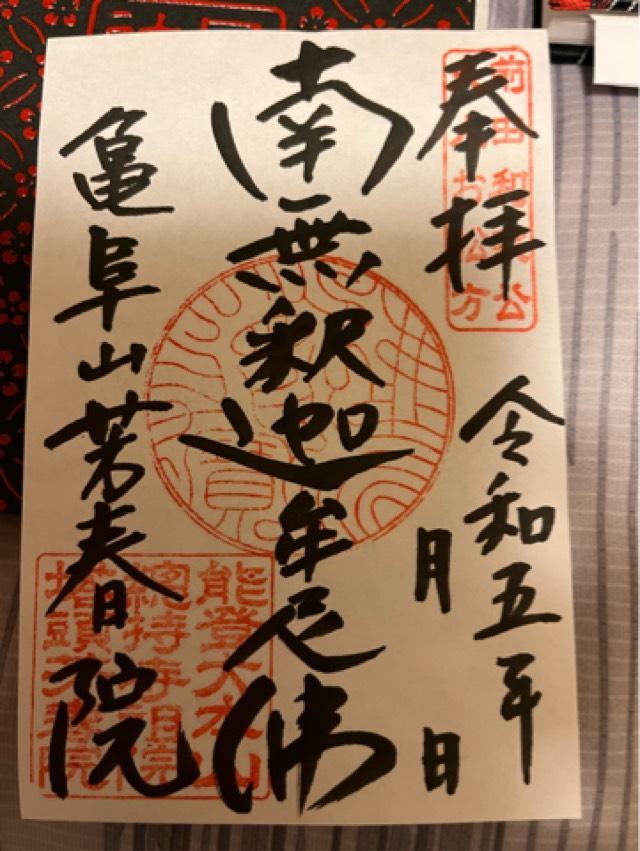 奉拝
令和五年
月 日
南無釈迦牟尼佛
亀阜山芳春院
能登大本山
總持寺祖院
塔頭芳春院